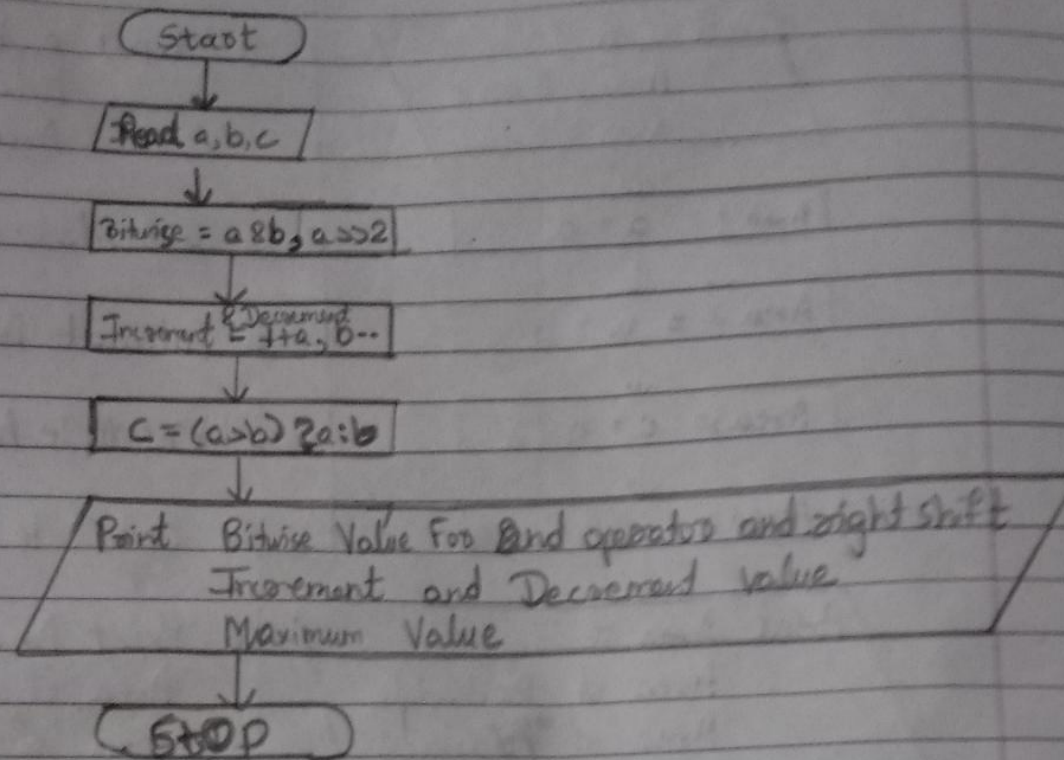 Start
Read a, b, c
Bitwise = a & b, a >> 2
& Decrement
Increment = ++a, b--
C = (a>b) ? a : b
Print Bitwise Value For And operator and right shift
Increment and Decrement value
Maximum Value
StOP